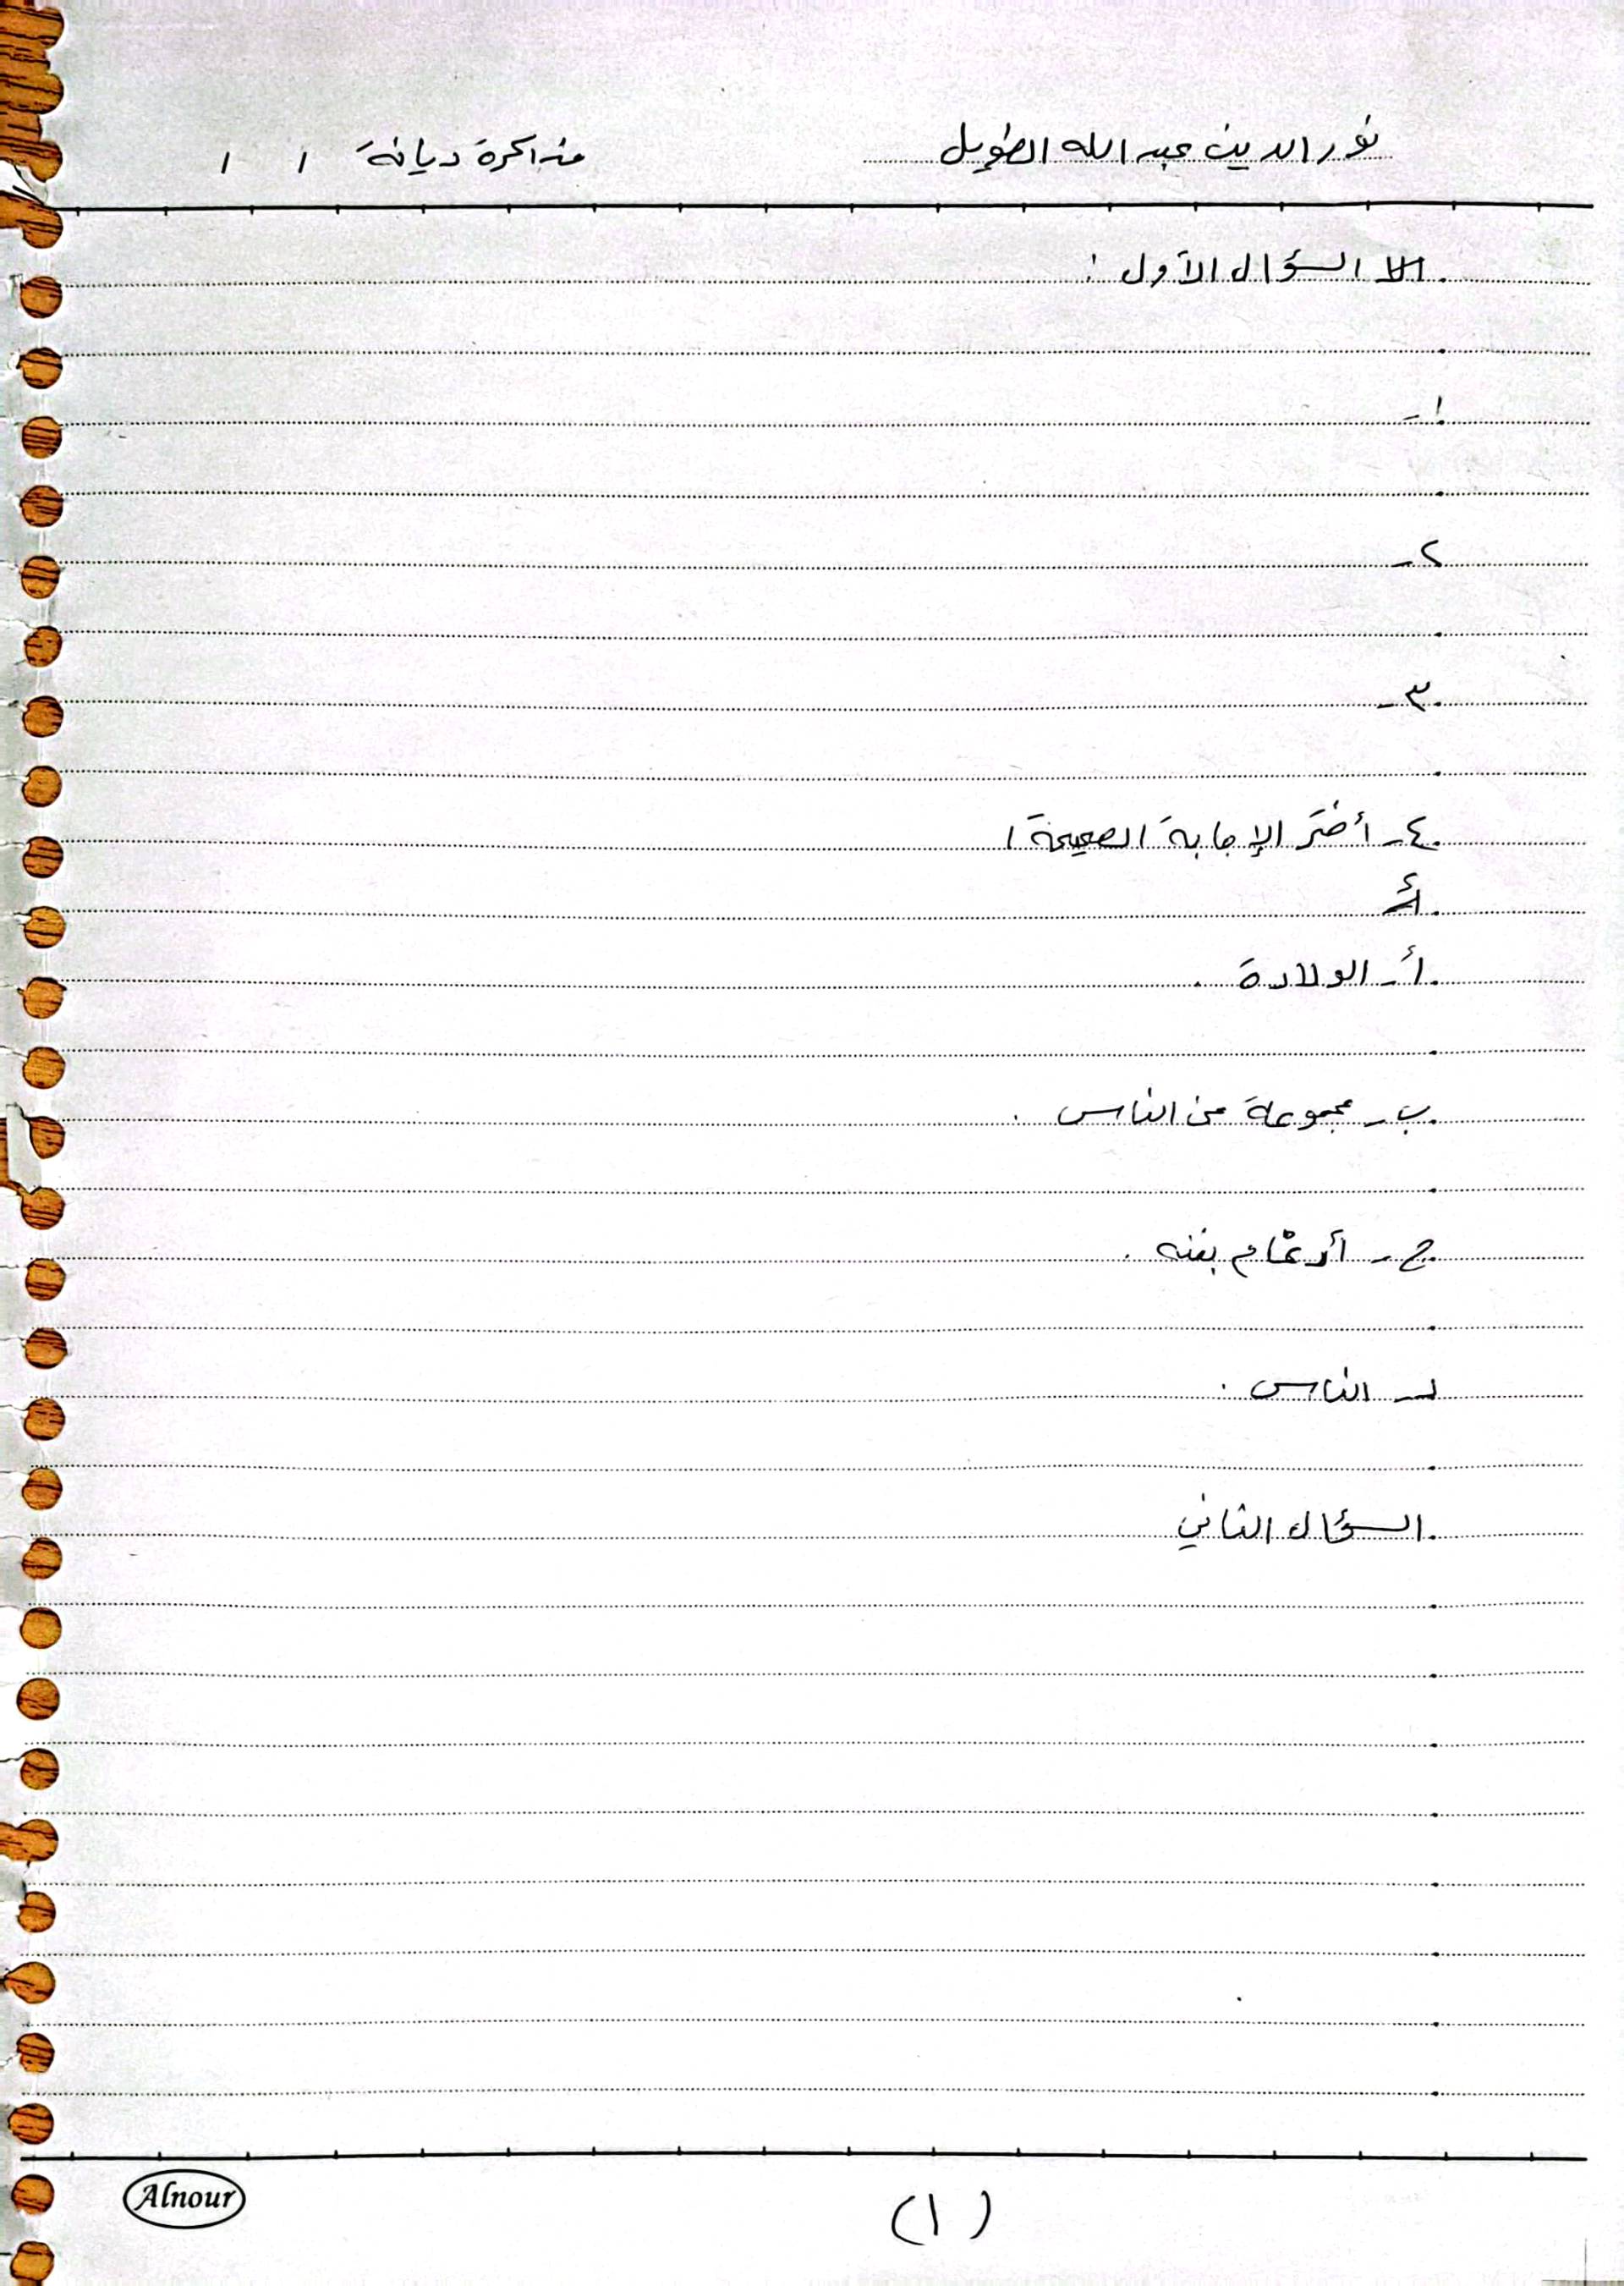 نور الدين عبد الله الطويل
مذاكرة ديانة / /
السؤال الأول :
١-
٢-
٣-
٤- أختر الإجابة الصحيحة :
أ- الولادة .
ب- مجموعة من الناس .
ج- إدغام بغنه .
د- الناس .
السؤال الثاني
Alnour
(١)